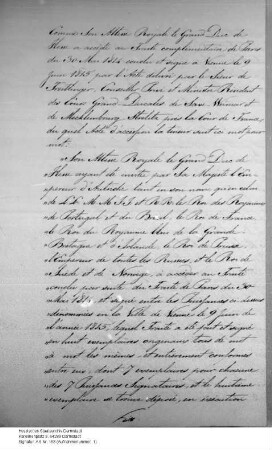 Comme Son Altesse Royale le Grand Duc de
Hesse a accédé au Traité complémentaire de Paris
du 30 Mai 1814 conclu et signé à Vienne le 9
Juin 1815 par l'Acte délivré par le Sieur de
Conseiller Privé et Ministre Résident
des Cours Grand-Ducales de Saxe Weimar et
de Mecklembourg Strelitz près la Cour de
du quel Acte d'accession la teneur suit ici mot pour
mot.
Son Altesse Royale le Grand Duc de
Hesse ayant été invité par Sa Majesté l'Em-
pereur d'Autriche tant en son nom qu'en celui
de LL. M.M. I. et R.R. le Roi des Royaumes
de Portugal et du Brésil, le Roi de France,
le Roi du Royaume Uni de la Grande
Bretagne et d'Irlande, le Roi de Prusse,
l'Empereur de toutes les Russies, et le Roi de
Suède et de Norvège, à accéder au Traité
conclu par suite du Traité de Paris du 30
Mai 1814, et signé entre les Puissances ci dessus
dénommées en la Ville de Vienne le 9 Juin de
l'année 1815, lequel Traité a été fait et signé
en huit exemplaires originaux tous de mot
à mot les mêmes et entièrement conformes
entre eux, dont 7 exemplaires pour chacune
des 7 Puissances Signataires, et le huitième
exemplaire se trouve déposé, en exécution